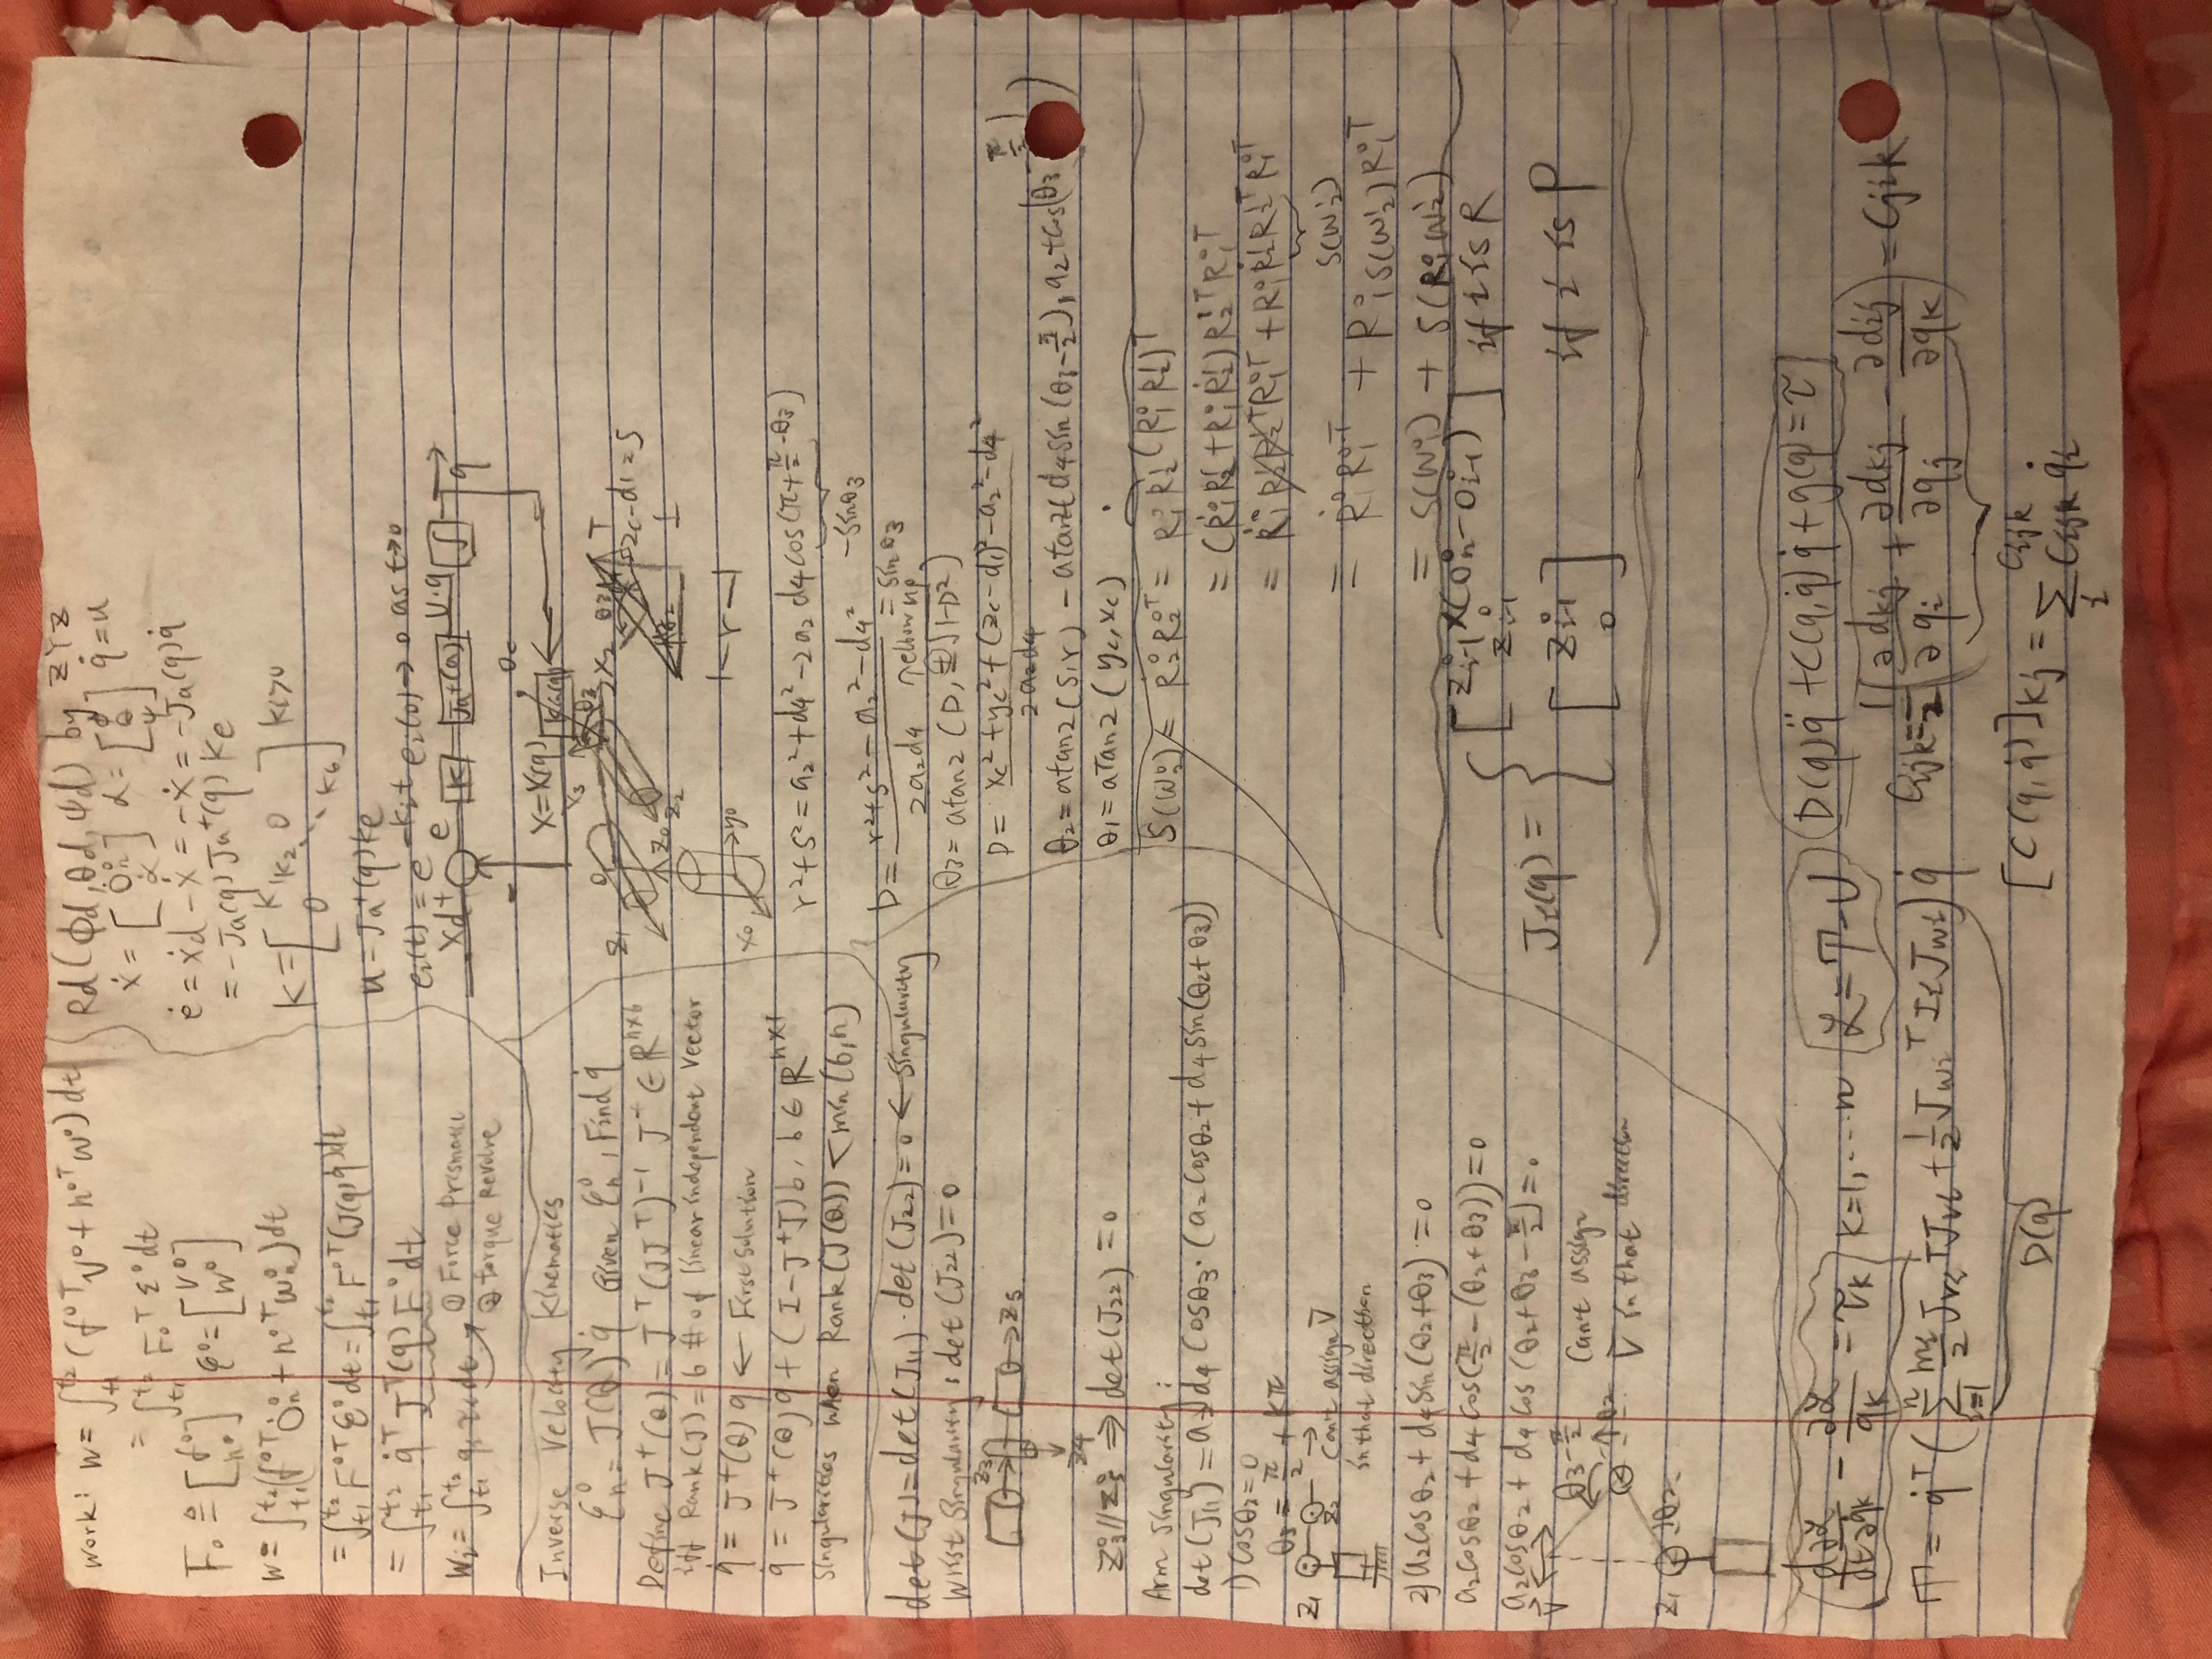 work: W = ∫_{t1}^{t2} (f⁰ᵀ V⁰ + n⁰ᵀ ω⁰) dt
= ∫_{t1}^{t2} F₀ᵀ ξ⁰ dt
F₀ ≜ [f⁰ n⁰] ξ⁰ = [V⁰ W⁰]
W = ∫_{t1}^{t2} (f⁰ᵀ Ȯₙ⁰ + n⁰ᵀ ωₙ⁰) dt
= ∫_{t1}^{t2} F⁰ᵀ ξ⁰ dt = ∫_{t1}^{t2} F⁰ᵀ (J(q) q̇) dt
= ∫_{t1}^{t2} q̇ᵀ Jᵀ(q) F⁰ dt
Wi = ∫_{t1}^{t2} dt
① Force Prismatic
② torque Revolve
Inverse Velocity Kinematics
ξₙ⁰ = J(θ) q̇ Given ξₙ⁰, Find q̇
Define J⁺(θ) = Jᵀ(JJᵀ)⁻¹ J⁺ ∈ ℝⁿˣ⁶
iff Rank(J) = 6 # of linear independent Vector
q̇ = J⁺(θ) q ← First Solution
q̇ = J⁺(θ) q + (I - J⁺J) b, b ∈ ℝⁿˣ¹
Singularities when Rank(J(θ)) < min(6,n)
det(J) = det(J₁₁) · det(J₂₂) = 0 ← Singularity
Wrist Singularity: det(J₂₂) = 0
Z3
Z5
Z4
Z₃⁰ // Z₅⁰ ⇒ det(J₂₂) = 0
Arm Singularity:
det(J₁₁) = a₂ d₄ cosθ₃ · (a₂ cosθ₂ + d₄ sin(θ₂+θ₃))
1) cosθ₂ = 0
θ₃ = π/2 + kπ
Z₁
Z₂
Can't assign V̄
in that direction
2) a₂ cosθ₂ + d₄ sin(θ₂+θ₃) = 0
a₂ cosθ₂ + d₄ cos(π/2 - (θ₂+θ₃)) = 0
a₂ cosθ₂ + d₄ cos(θ₂+θ₃ - π/2) = 0
V
θ₃ - π/2
Can't assign
θ₂
V̄ in that direction
Z₁ θ₂
Rd(φd, θd, ψd) by ZYZ
ẋ = [Ȯₙ⁰ α̇] α = [φ θ ψ] q̇ = u
ė = ẋd - ẋ = -ẋ = -Ja(q) q̇
= -Ja(q) Ja⁺(q) Ke
K = [K₁ K₂ 0 0 ⋱ K₆] Ki>0
u = Ja⁺(q) Ke
ei(t) = e^{-Kit} ei(0) → 0 as t→0
Xd + e K Ja⁺(q) U=q̇ ∫ q
-
X = X(q)
Oc
X₃ θ₃ X₂
Z₁
Z₀ Z₂
X₀ y₀
Zc - d₁ = S
θ₂
r
r² + s² = a₂² + d₄² - 2a₂ d₄ cos(π + π/2 - θ₃)
-sinθ₃
D = (r² + s² - a₂² - d₄²) / 2a₂d₄ = sinθ₃
↑ elbow up
θ₃ = atan2(D, ±√(1-D²))
D = (Xc² + yc² + (Zc - d₁)² - a₂² - d₄²) / 2a₂d₄
θ₂ = atan2(s, r) - atan2(d₄ sin(θ₃ - π/2), a₂ + cos(θ₃ - π/2))
θ₁ = aTan2(yc, xc)
S(W₂⁰) = Ṙ₂⁰ R₂⁰ᵀ = R₁⁰ R₂¹ (R₁⁰ R₂¹)ᵀ
= (Ṙ₁⁰ R₂¹ + R₁⁰ Ṙ₂¹) R₂¹ᵀ R₁⁰ᵀ
= Ṙ₁⁰ R₂¹ R₂¹ᵀ R₁⁰ᵀ + R₁⁰ Ṙ₂¹ R₂¹ᵀ R₁⁰ᵀ
S(W₂¹)
= Ṙ₁⁰ R₁⁰ᵀ + R₁⁰ S(W₂¹) R₁⁰ᵀ
= S(W₁⁰) + S(R₁⁰ W₂¹)
Ji(q) = { [Z⁰ᵢ₋₁ × (Oₙ⁰ - O⁰ᵢ₋₁) Zᵢ₋₁⁰] if i is R
[Z⁰ᵢ₋₁ 0] if i is P
d/dt ∂ℒ/∂q̇k - ∂ℒ/qk = τk k=1,...n ℒ = T - U D(q)q̈ + C(q,q̇)q̇ + g(q) = τ
T = q̇ᵀ ( Σ_{i=1}^{n} mi/2 Jviᵀ Jvi + 1/2 Jwiᵀ Ii Jwi ) q̇
D(q)
Cijk = 1/2 (∂dkj/∂qi + ∂dkj/∂qj - ∂dij/∂qk) = Cjik
Cijk
[C(q,q̇)]kj = Σ_i Cijk q̇i